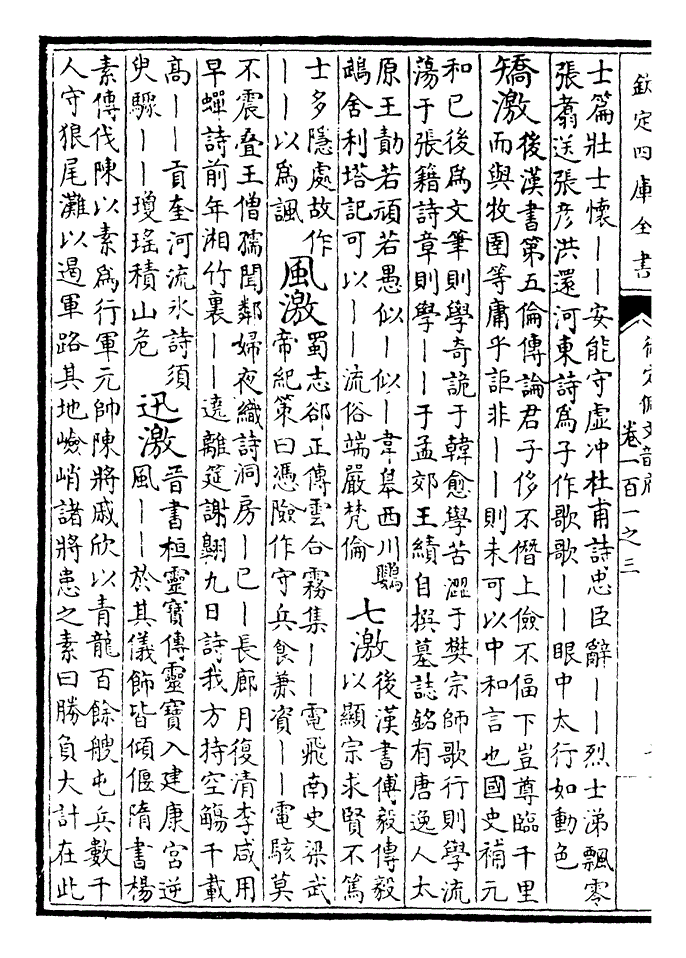 欽定四庫全書
御定佩文韻府
卷一百一之三
士篇壯士懷——安能守虛冲杜甫詩忠臣辭——烈士涕飄零
張翥送張彦洪還河東詩爲子作歌歌——眼中太行如動色
矯激
後漢書第五倫傳論君子侈不僭上儉不偪下豈尊臨千里
而與牧圉等庸乎詎非——則未可以中和言也國史補元
和已後爲文筆則學奇詭于韓愈學苦澀于樊宗師歌行則學流
蕩于張籍詩章則學——于孟郊王績自撰墓誌銘有唐逸人太
原王勣若頑若愚似—似—韋皋西川鸚
鵡舍利塔記可以——流俗端嚴梵倫
七激
後漢書傅毅傳毅
以顯宗求賢不篤
士多隱處故作
——以爲諷
風激
蜀志郤正傳雲合霧集——電飛南史梁武
帝紀策曰憑險作守兵食兼資——電駭莫
不震疊王僧孺聞鄰婦夜織詩洞房—已—長廊月復清李咸用
早蟬詩前年湘竹裏——遶離筵謝翺九日詩我方持空觴千載
高——貢奎河流氷詩須
臾驟——瓊瑤積山危
迅激
晉書桓靈寶傳靈寶入建康宮逆
風——於其儀飾皆傾偃隋書楊
素傳伐陳以素爲行軍元帥陳將戚欣以青龍百餘艘屯兵數千
人守狼尾灘以遏軍路其地嶮峭諸將患之素曰勝負大計在此